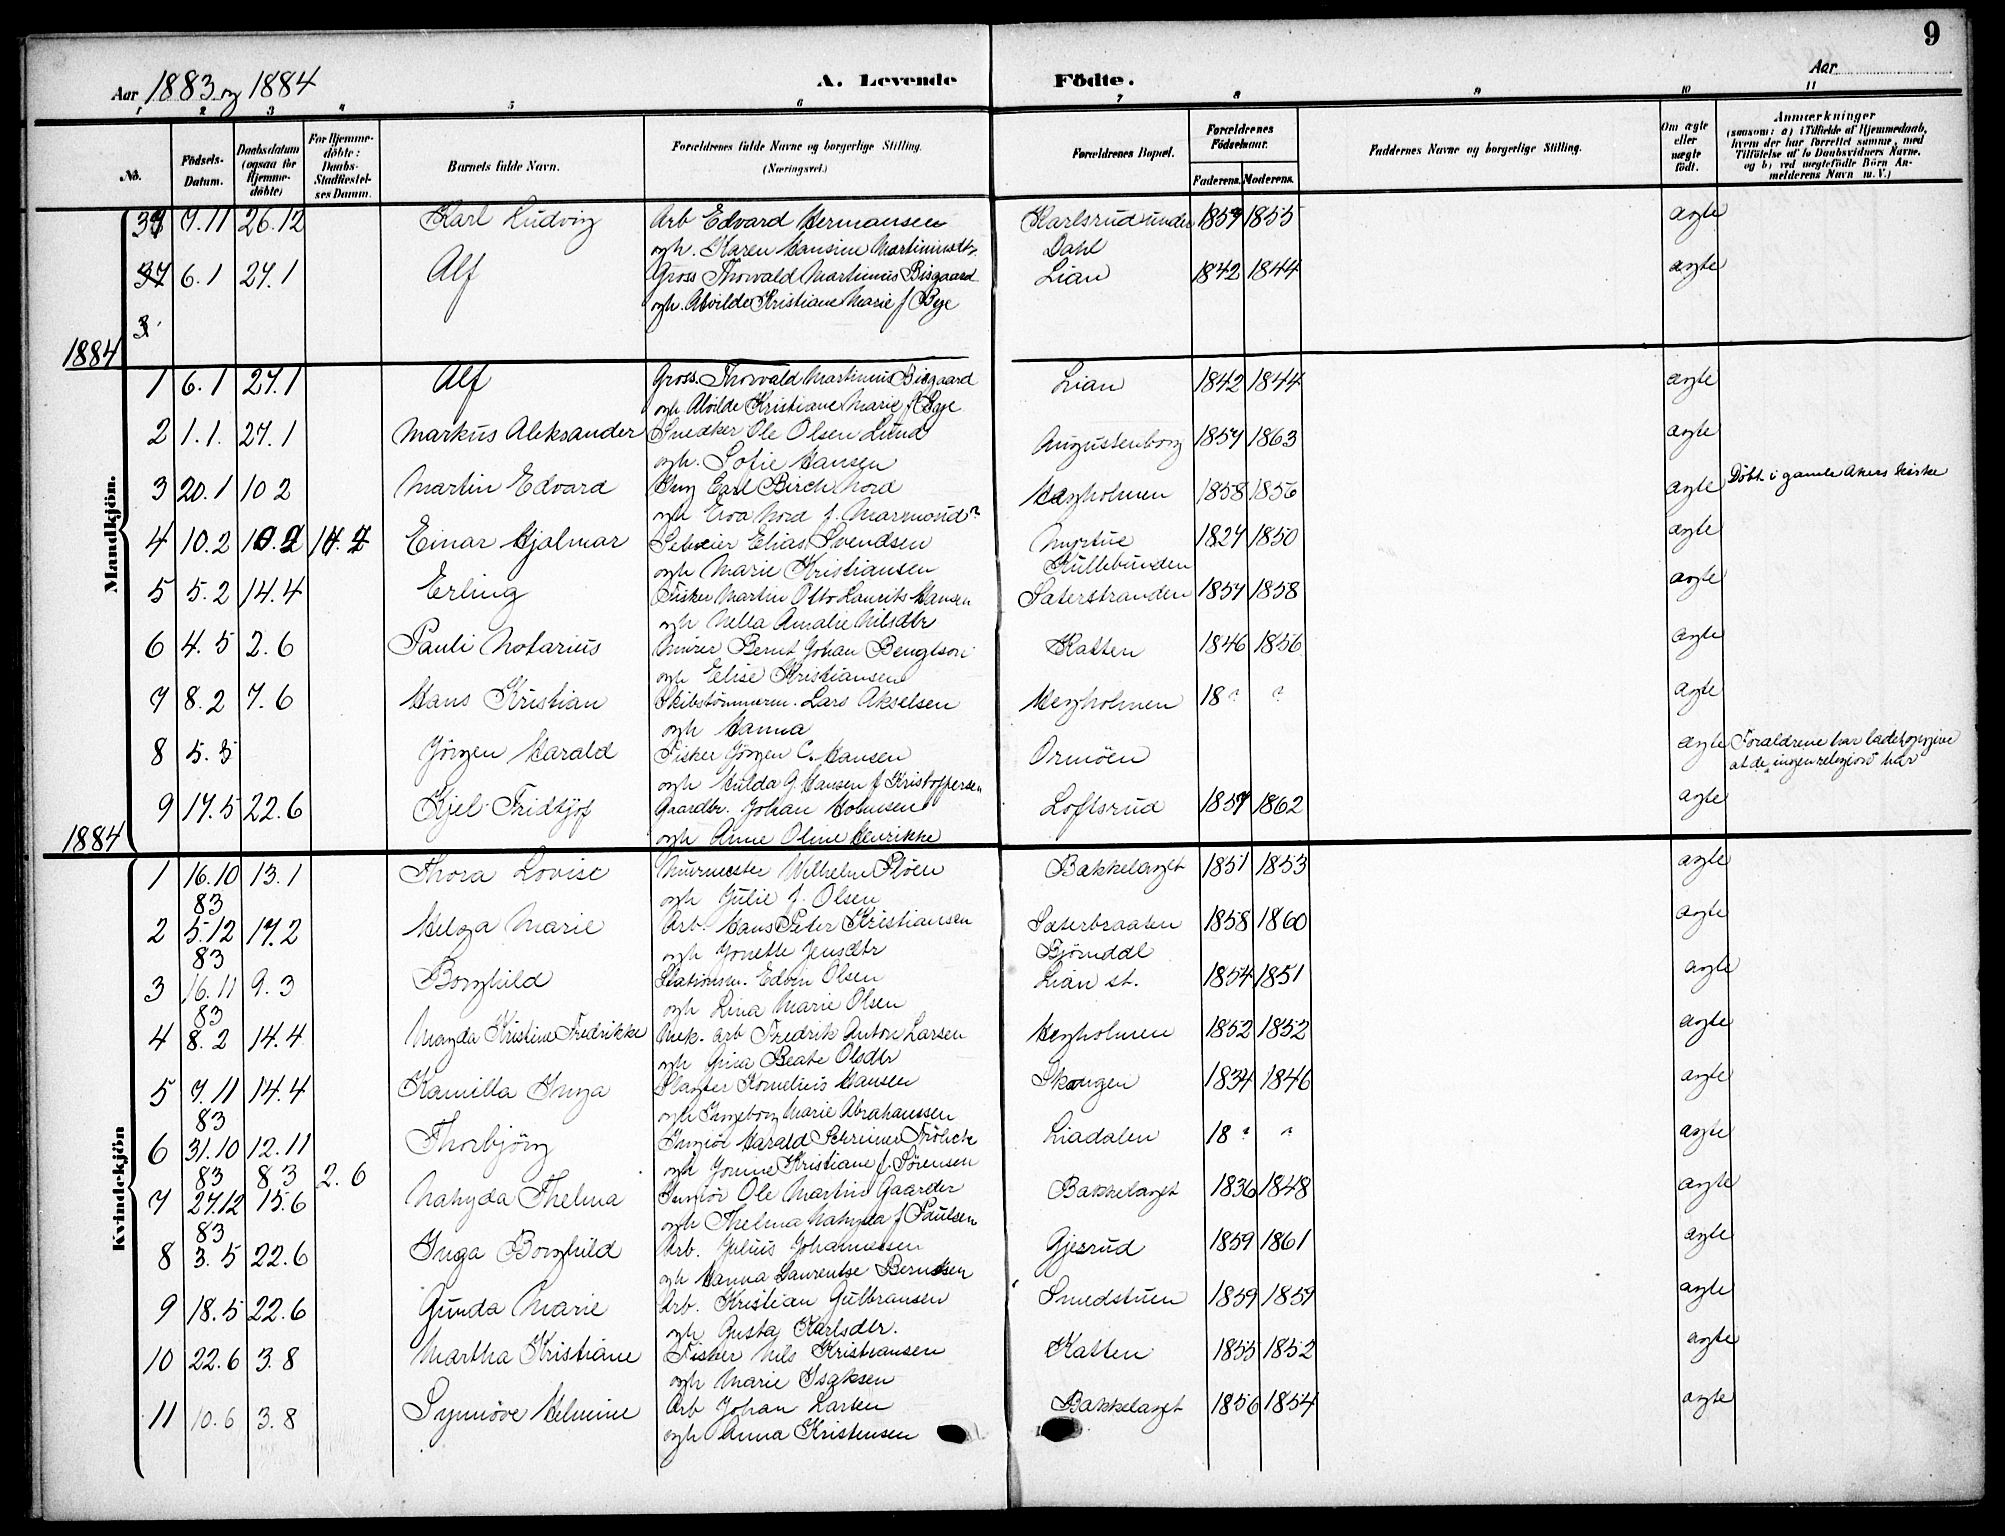 9
Aar 1883 og 1884 A. Levende Födte. Aar
1 2 3 4 5 6 7 8 9 10 11
No. Födsels-Datum. Daabsdatum (ogsaa for Hjemme-döbte) For Hjemme-döbte: Daabs-Stadfæstel-ses Datum. Barnets fulde Navn. Forældrenes fulde Navne og borgerlige Stilling. (Næringsvei.) Forældrenes Bopæl. Forældrenes Födselsaar. Faderens. Moderens. Faddernes Navne og borgerlige Stilling. Om ægte eller uægte födt. Anmærkninger (saasom: a) i Tilfælde af Hjemmedaab, hvem der har forrettet samme, med Tilföielse af to Daabsvidners Navne, og b) ved uægtefödte Börn An-melderens Navn m. V.)
37 9.11 26.12 Karl Ludvig Arb Edvard Hermansen Karlsrud under 1857 1855 ægte
ogh. Karen Hansine Martinusdtr. Dahl
37 6.1 27.1 Alf Gross Thorvald Martinus Bisgaard Lian 1842 1844 ægte
ogh. Alvilde Kristiane Marie f Bye
3
1884
Mandkjön.
1 6.1 27.1 Alf Gross. Thorvald Martinus Bisgaard Lian 1842 1844 ægte
ogh. Alvilde Kristiane Marie f Bye
2 1.1. 27.1 Markus Aleksander Snedker Ole Olsen Lund Augustenborg 1857 1863 ægte
ogh. Sofie Hansen
3 20.1 10 2 Martin Edvard Ing Carl Birch Nord Hegholmen 1858 1856 ægte Döbt i gamle Akers Kirke
ogh Eva Nord f. Marmond?
4 10.2 10.2 14.2 Einar Hjalmar Elias Svendsen Myrtue 1824 1850 ægte
ogh Marie Kristiansen Kullebunden
5 5.2 14.4 Erling Fisker Martin Otto Laurits Hansen Sæterstranden 1857 1858 ægte
ogh Nella Amalie Nilsdtr
6 4.5 2.6 Pauli Notarius Murer Bernt Johan Bengtson Katten 1846 1856 ægte
ogh Elise Kristiansen
7 8.2 7.6 Hans Kristian Skibstömmerm. Lars Akselsen Hegholmen 18? ? ægte
ogh Hanna
8 5.3 Jörgen Harald Fisker Jörgen C. Hansen Ormöen ægte Foraldrene har ladet opgive
ogh Hulda G. Hansen f Kristoffersen at de ingen religion har
9 17.5 22.6 Kjel Fridtjof Gaardbr. Johan Holmsen Loftsrud 1857 1862 ægte
ogh Anne Oline Henrikke
1884
Kvindekjön
1 16.10 13.1 Thora Lovise Murmester Wilhelm Pløen Bækkelaget 1851 1853 ægte
83 ogh Julie f. Olsen
2 5.12 17.2 Helga Marie Arb. Hans Peter Kristiansen Sæterbraaten 1858 1860 ægte
83 ogh Jonette Jensdtr Bjørndal
3 16.11 9.3 Borghild Stationsm. Edvin Olsen Lian st. 1854 1851 ægte
83 ogh Lina Marie Olsen
4 8.2 14.4 Magda Kristine Fredrikke Mek. arb Fredrik Anton Larsen Hegholmen 1852 1852 ægte
ogh Gina Beate Olsdtr
5 7.11 14.4 Kamilla Inga Slagter Kornelius Hansen Skougen 1834 1846 ægte
83 ogh Ingeborg Marie Abrahamsen
6 31.10 12.11 Thorbjörg Ingniör Harald Schreiner Frölich Liadalen 18? ? ægte
83 83 2.6 ogh Jonine Kristiane f. Sörensen
7 27.12 15.6 Nahyda Thelma Ingniör Ole Martin Gaarder Bækkelaget 1836 1848 ægte
83 ogh Thelma Nahyda f Paulsen
8 3.5 22.6 Inga Borghild Arb. Julius Johannessen Gjersrud 1859 1861 ægte
ogh Hanna Laurentse Berntsen
9 18.5 22.6 Gunda Marie Arb. Kristian Gulbransen Smedstuen 1859 1859 ægte
ogh Gusta Karlsdtr.
10 22.6 3.8 Martha Kristiane Fisker Nils Kristiansen Katten 1855 1852 ægte
ogh Marie Isaksen
11 10.6 3.8 Synnöve Helmine Arb Johan Larsen Bækkelaget 1856 1854 ægte
ogh Anna Kristensen